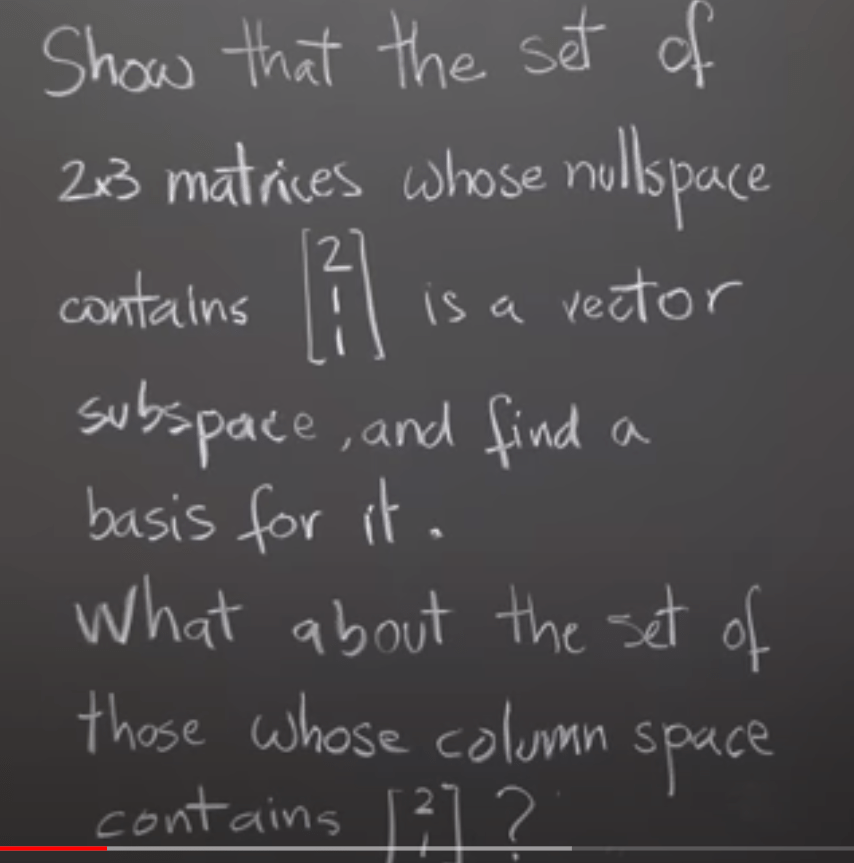 Show that the set of
2x3 matrices whose nullspace
contains [2 1 1] is a vector
subspace, and find a
basis for it.
What about the set of
those whose column space
contains [2 1]?